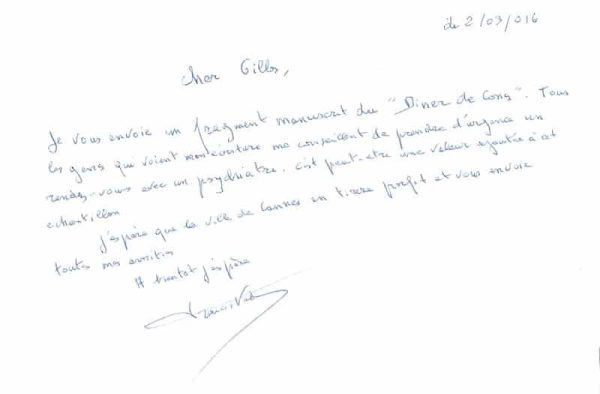 le 2/03/016
Cher Gilles,
Je vous envoie un fragment manuscrit du "Diner de Cons". Tous
les gens qui voient mon écriture me conseillent de prendre d'urgence un
rendez-vous avec un psychiatre. c'est peut-etre une valeur ajoutée à cet
echantillon
j'espère que la ville de Cannes en tirera profit et vous envoie
toutes mes amitiés
A bientot j'espère